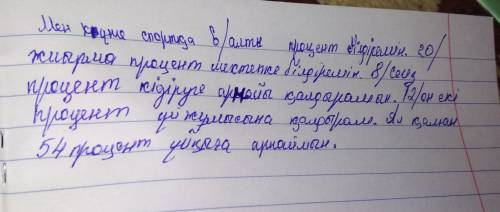 Мен күніне спортқа 6/алты процент бөлемін. 20/
жиырма процент мектепке бөлемін. 8/сегіз
процент қыдыруге арнайы қалдырамын. 12/он екі
процент үй жұмысына қалдырам. Ял қалған
54 процент ұйқыға арнаймын.